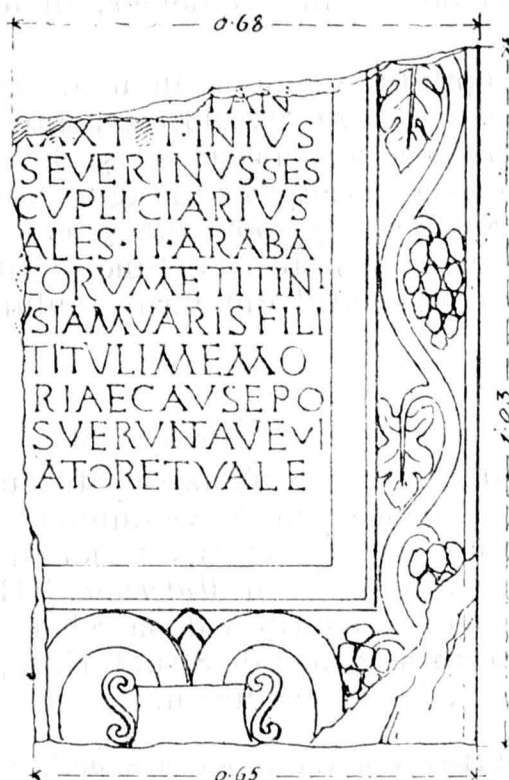 0·68
SEVERINVSSES
CVPLICIARIVS
ALES·II·ARABA
CORVMETITINI
VSIAMVARISFILI
TITVLIMEMO
RIAECAVSEPO
SVERVNTAVEVI
ATORETVALE
1·03
0·65